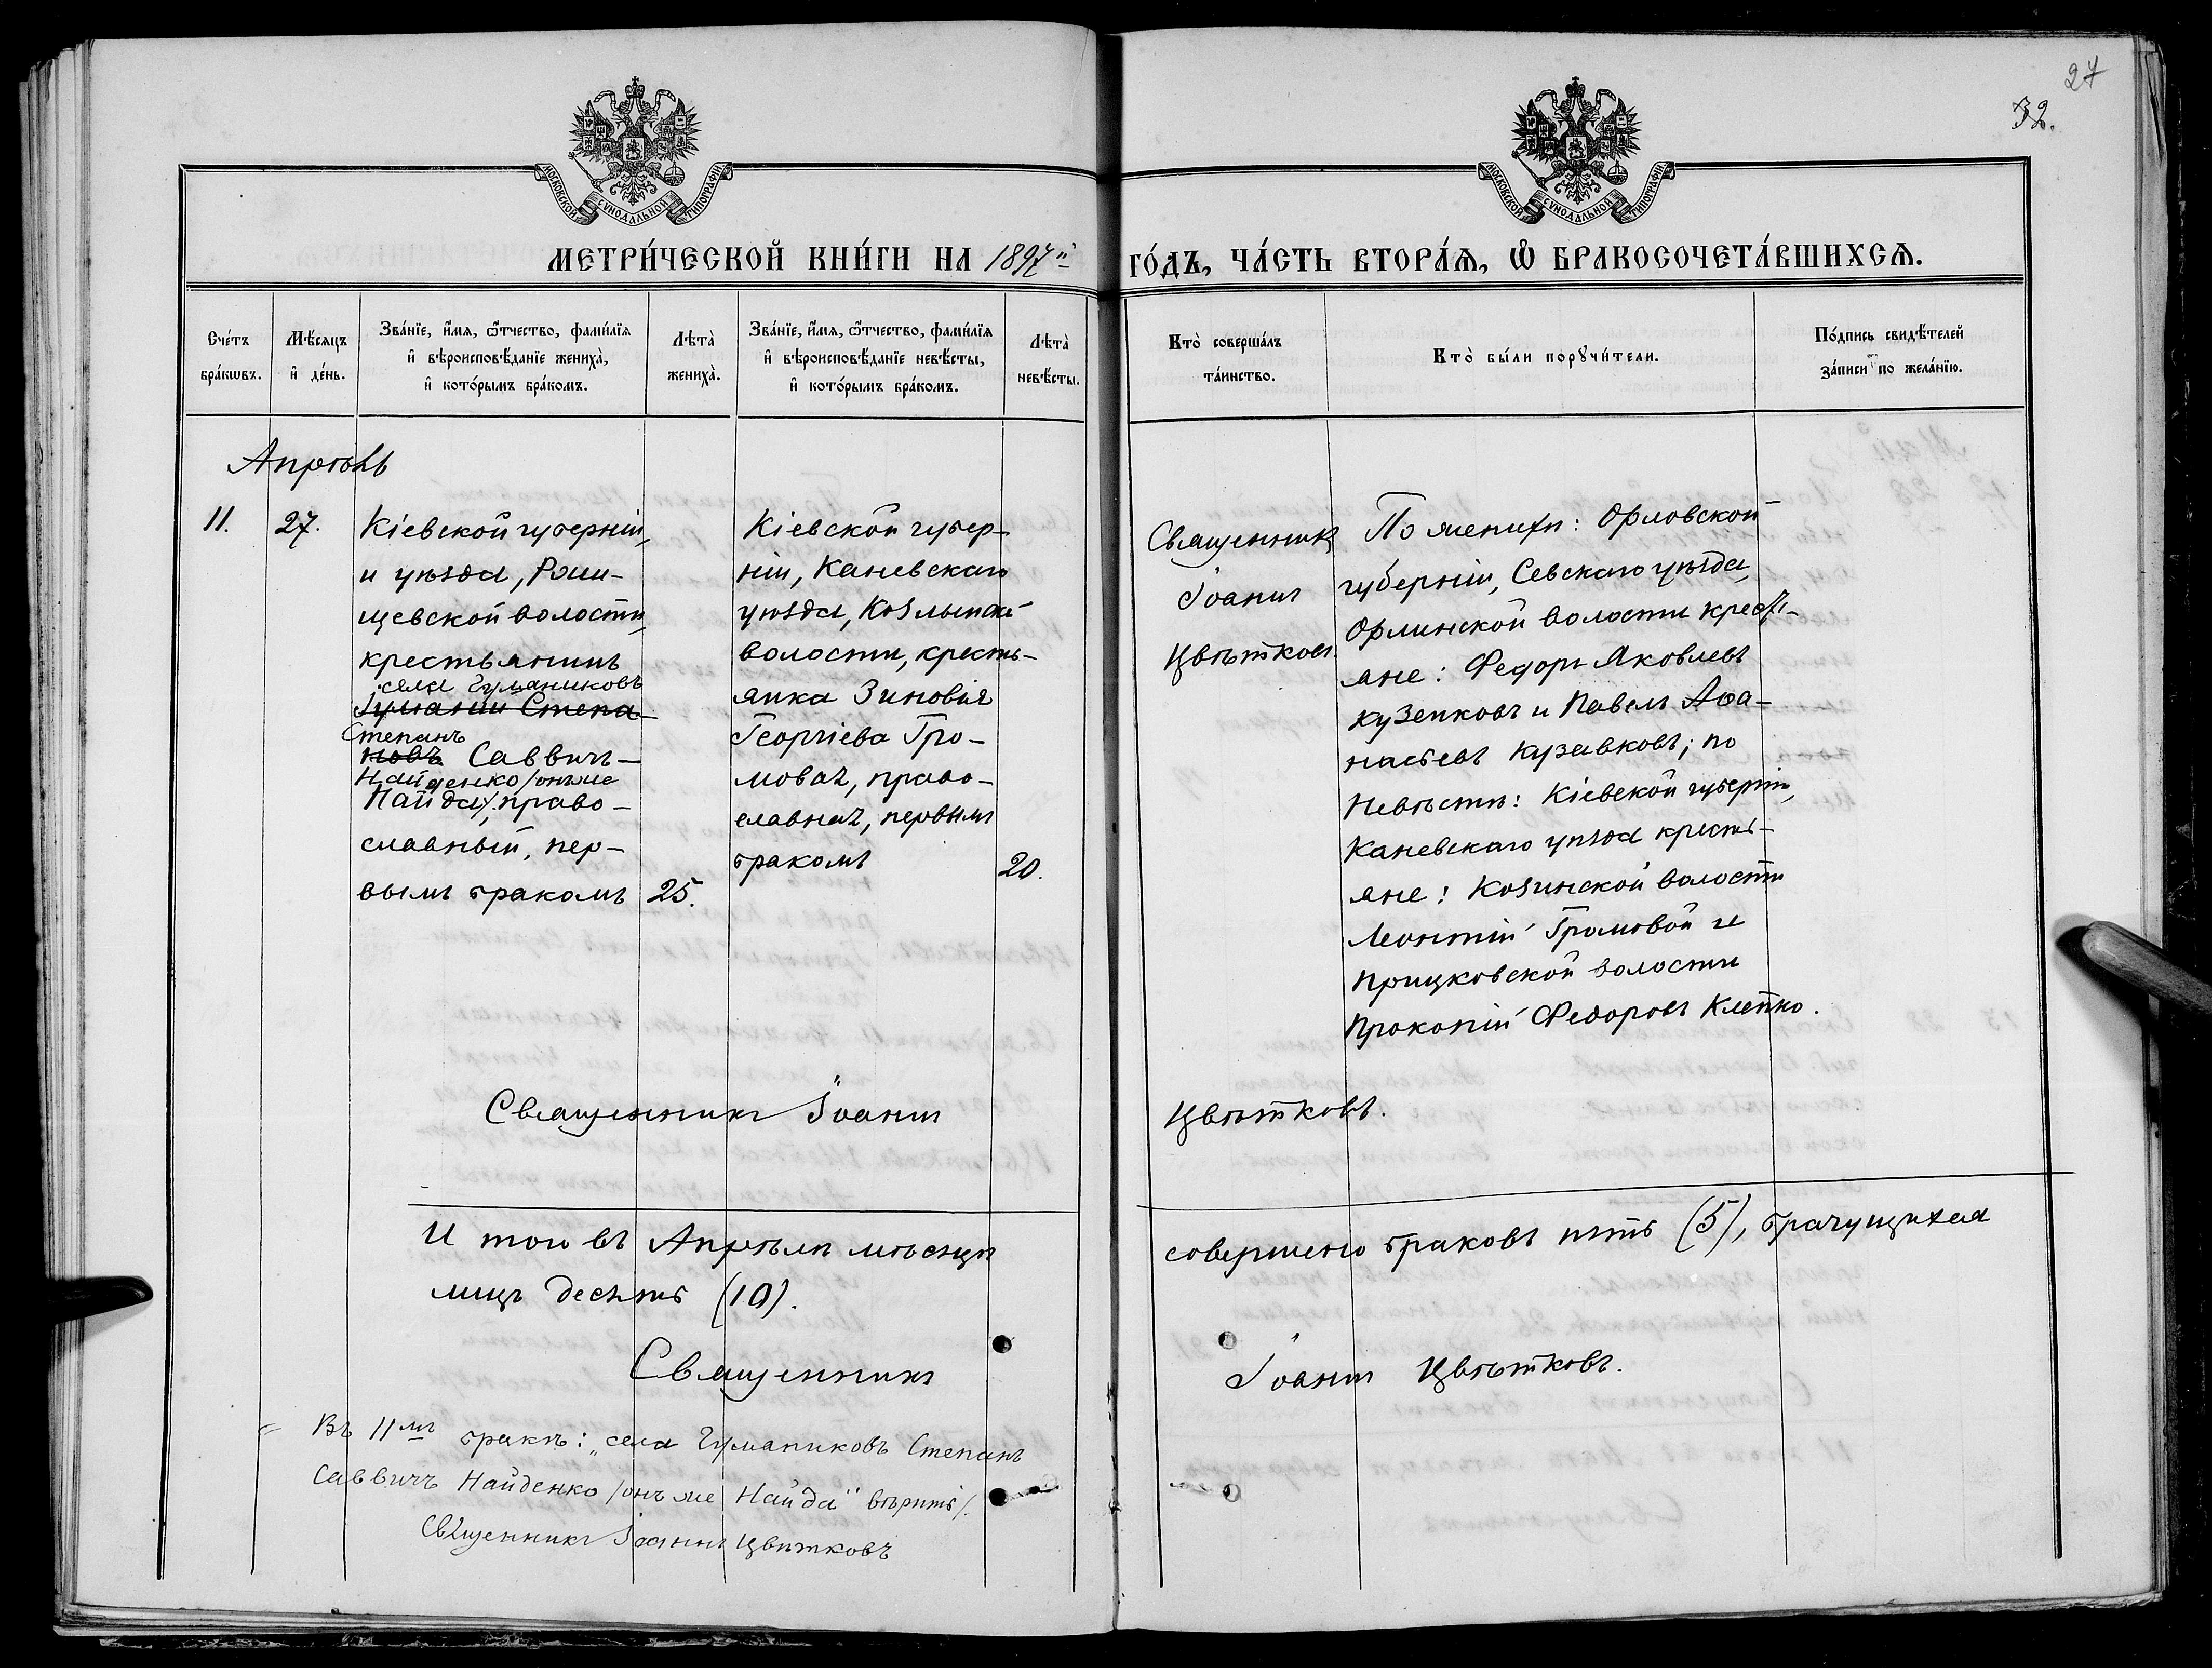 27
32.
МОСКОВСКОЙ СУНОДАЛЬНОЙ ТИПОГРАФІИ.
МОСКОВСКОЙ СУНОДАЛЬНОЙ ТИПОГРАФІИ.
МЕТРИ́ЧЕСКОЙ КНИ́ГИ НА 1897й ГО́ДЪ, ЧА́СТЬ ВТОРА́Ѧ, Ѽ БРАКОСОЧЕТА́ВШИХСѦ.
Сче́тъ
бра́кѡвъ.
Мѣ́сяцъ
и҆ де́нь.
Зва́нїе, и҆́мѧ, ѻ҆́тчество, фами́лїѧ
и҆ вѣроисповѣ́данїе жениха̀,
и҆ кото́рымъ бра́комъ.
Лѣта̀
жениха̀.
Зва́нїе, и҆́мѧ, ѻ҆́тчество, фами́лїѧ
и҆ вѣроисповѣ́данїе невѣ́сты,
и҆ кото́рымъ бра́комъ.
Лѣта̀
невѣ́сты.
Кто̀ соверша́лъ
та́инство.
Кто̀ бы́ли порꙋчи́тели.
По́дпись свидѣ́телей
за́писи по жела́нїю.
Апрѣль
11.
27.
Кіевской губерніи,
и уѣзда, Рош-
щевской волости,
крестьянинъ
села Гуманиковъ
Гуманіи Степа-
Степанъ
новъ Саввичъ-
Найденко /онъ же
Найда/, право-
славный, пер-
вымъ бракомъ
25.
Кіевской губер-
ніи, Каневскаго
уѣзда,
волости, кресть-
янка Зиновія
Георгіева Гро-
мовая, право-
славная, первымъ
бракомъ
20.
Священникъ
Іоаннъ
Цвѣтковъ.
По женихѣ: Орловской
губерніи, Севскаго уѣзда,
Орлинской волости крестъ-
яне: Федоръ Яковлевъ
Кузенковъ и Павелъ Аѳа-
насьевъ Кузавковъ; по
невѣстѣ: Кіевской губерніи,
Каневскаго уѣзда кресть-
яне: Козинской волости
Леонтій Громовой и
Прицковской волости
Прокопій Федоровъ Клепко.
Священникъ Іоаннъ Цвѣтковъ.
И того въ Апрѣлѣ мѣсяцѣ совершено браковъ пять (5), брачущихся
лицъ десять (10).
Священникъ Іоаннъ Цвѣтковъ.
Въ 11мъ бракѣ: „села Гуманиковъ Степанъ
Саввичъ Найденко /онъ же Найда" вѣрить/.
Священникъ Іоаннъ Цвѣтковъ